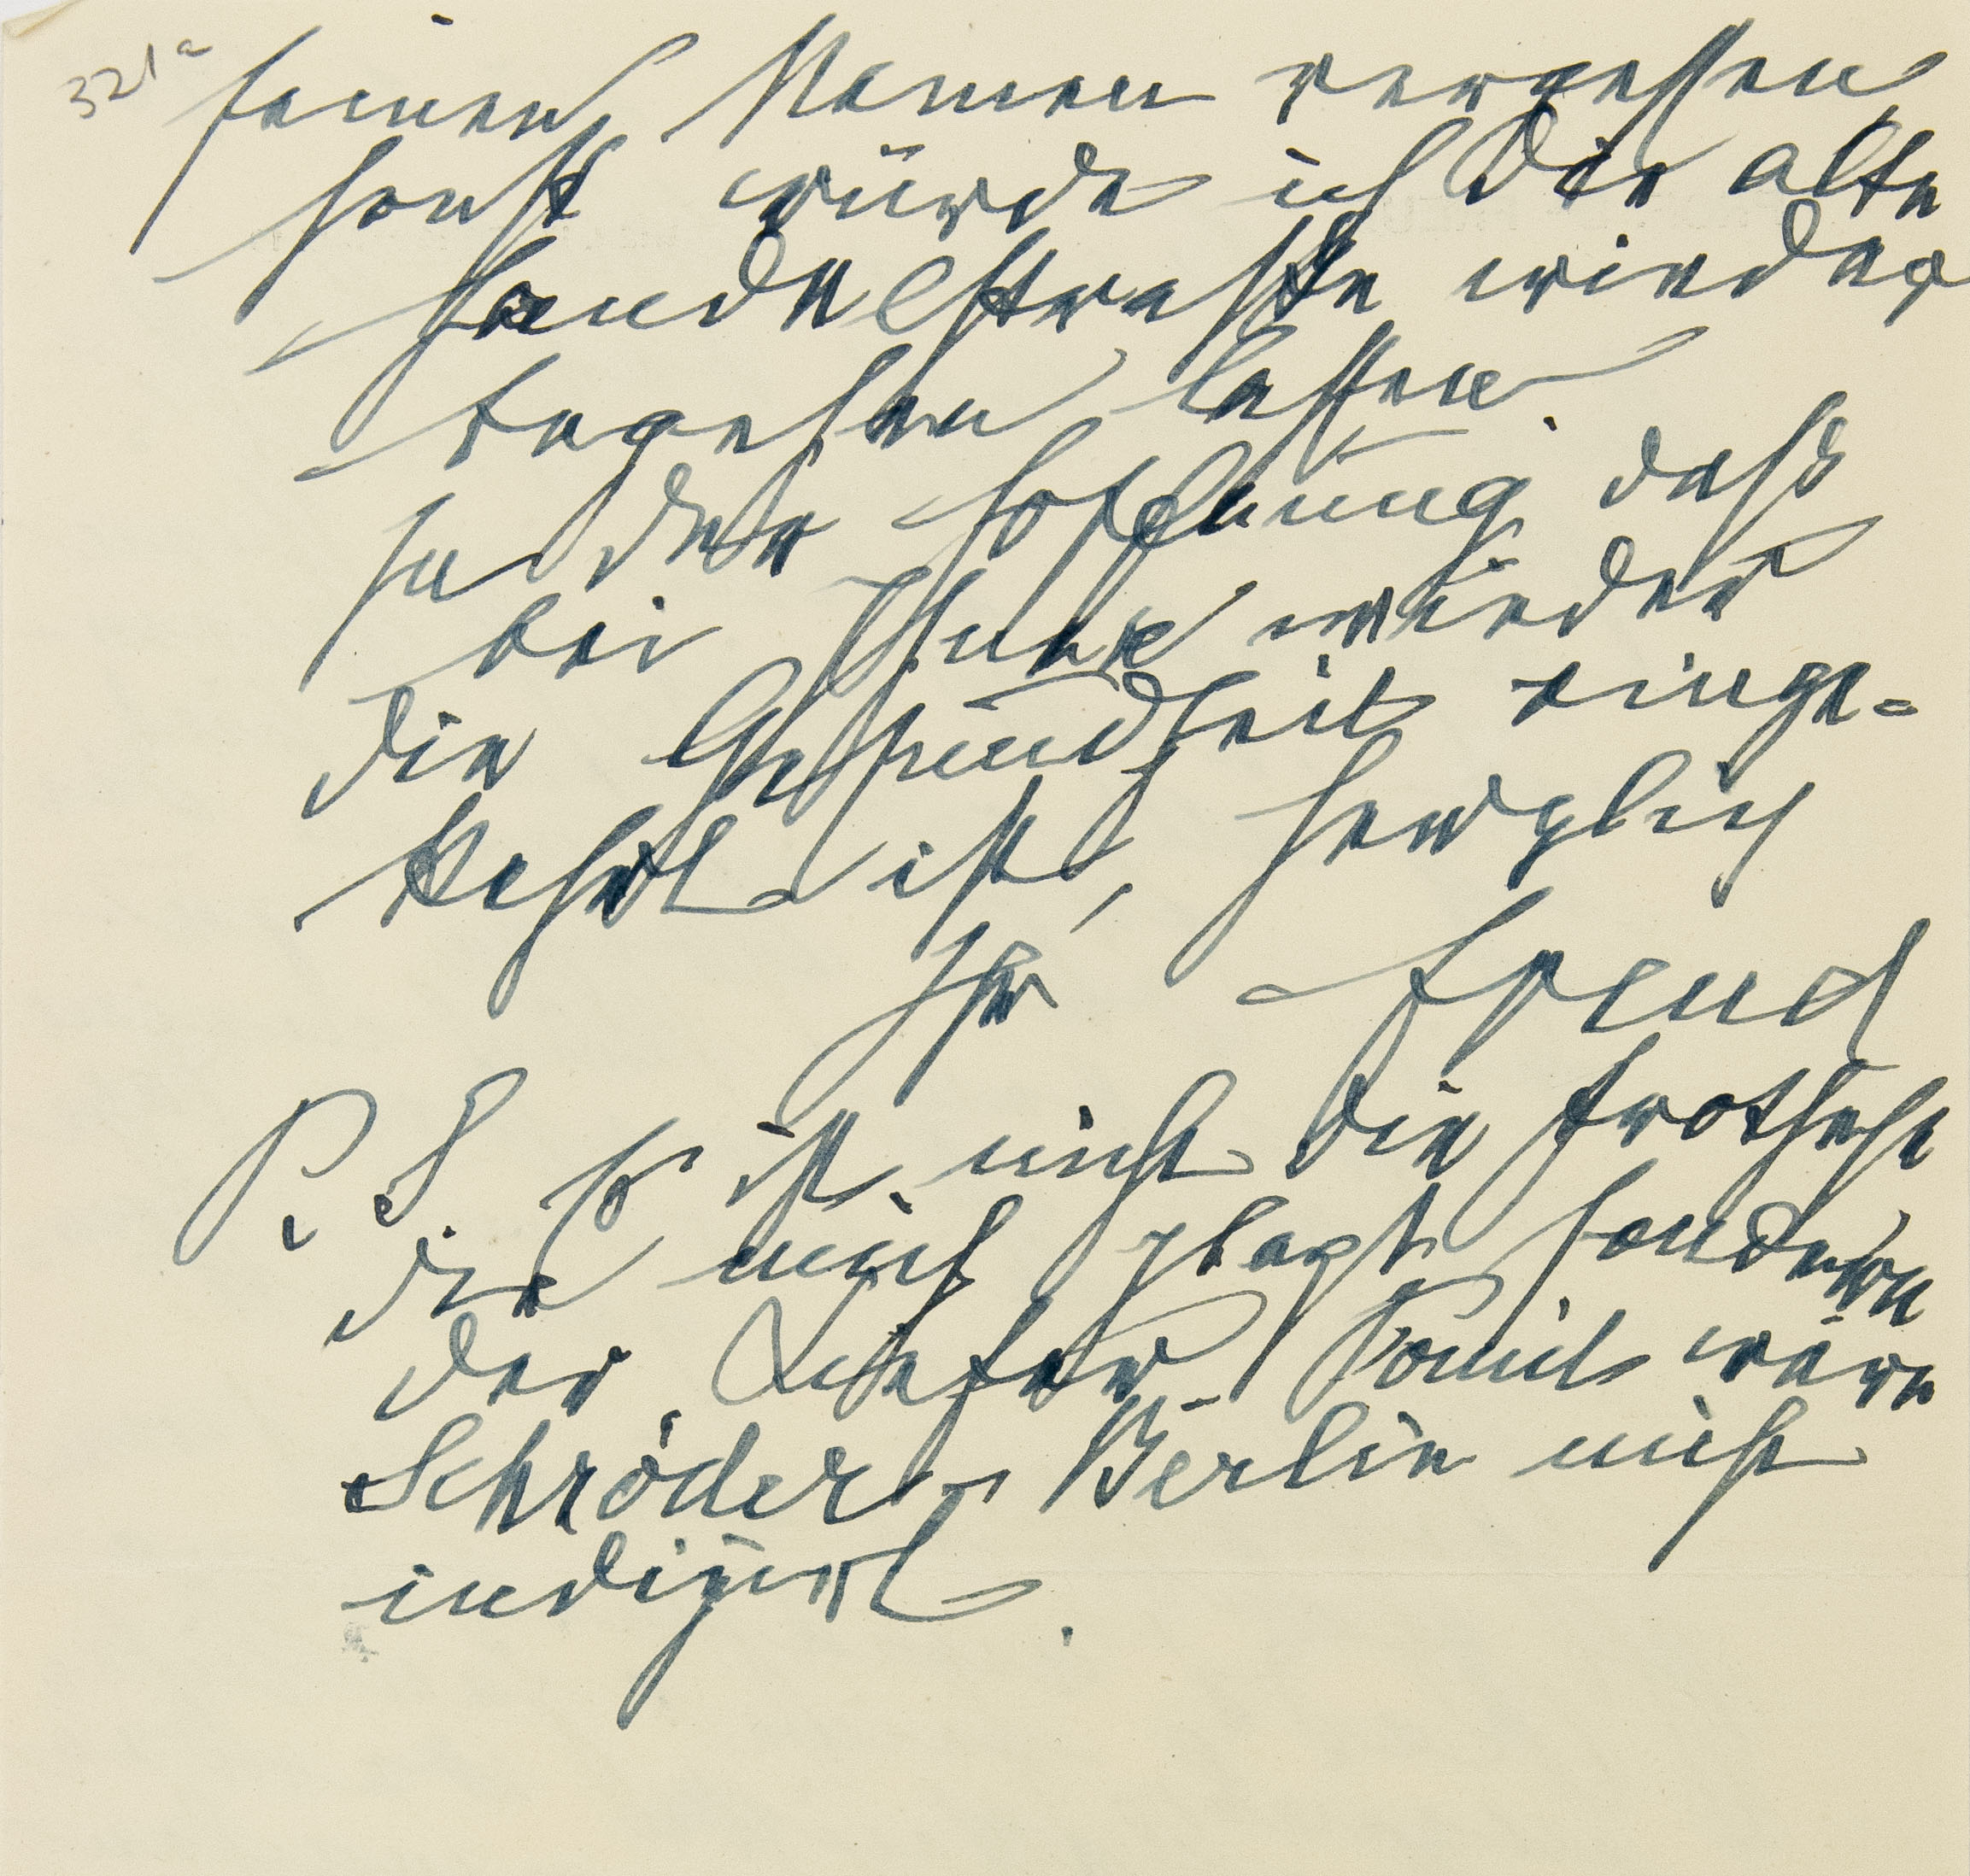 321a
seinen Namen vergessen
sonst würde ich die alte
Handelstrasse wieder
begehen lassen.
In der Hoffnung dass
bei Ihnen wieder
die Gesundheit einge-
kehrt ist, herzlich
Ihr Freud
P.S. Es ist nicht die Prothese
die mich plagt sondern
der Kiefer. Somit wäre
Schröder - Berlin nicht
indiziert.